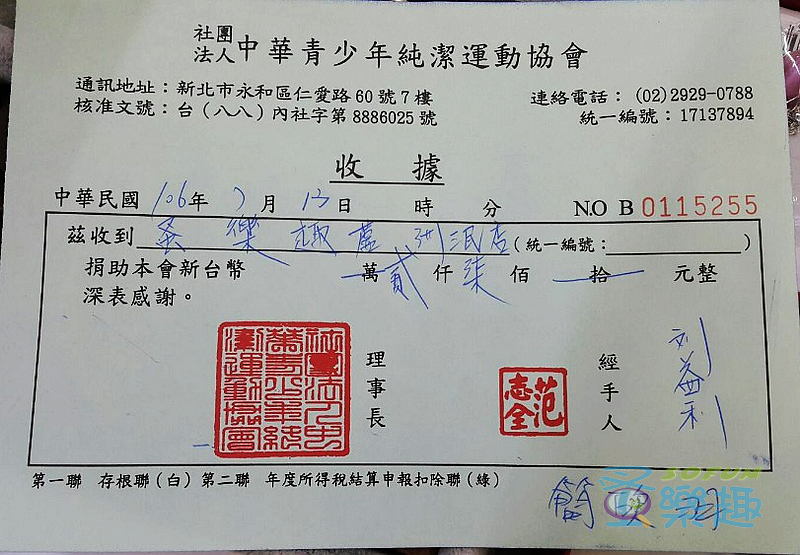 社團法人中華青少年純潔運動協會
通訊地址：新北市永和區仁愛路60號7樓
連絡電話：(02)2929-0788
核准文號：台（八八）內社字第8886025號
統一編號：17137894
收據
中華民國106年7月13日 時 分 N.O B 0115255
茲收到 柔樂趣蘆洲店（統一編號： ）
捐助本會新台幣 萬貳仟柒佰 拾 元整
深表感謝。
社團法人中華青少年純潔運動協會
理事長
范志全
經手人
刘益利
第一聯 存根聯(白) 第二聯 年度所得稅結算申報扣除聯(綠)
SOFUN
樂趣